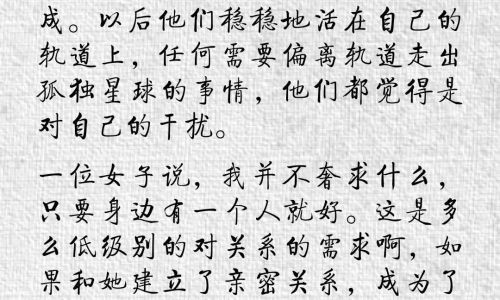 成。以后他们稳稳地活在自己的
轨道上，任何需要偏离轨道走出
孤独星球的事情，他们都觉得是
对自己的干扰。
一位女子说，我并不奢求什么，
只要身边有一个人就好。这是多
么低级别的对关系的需求啊，如
果和她建立了亲密关系，成为了